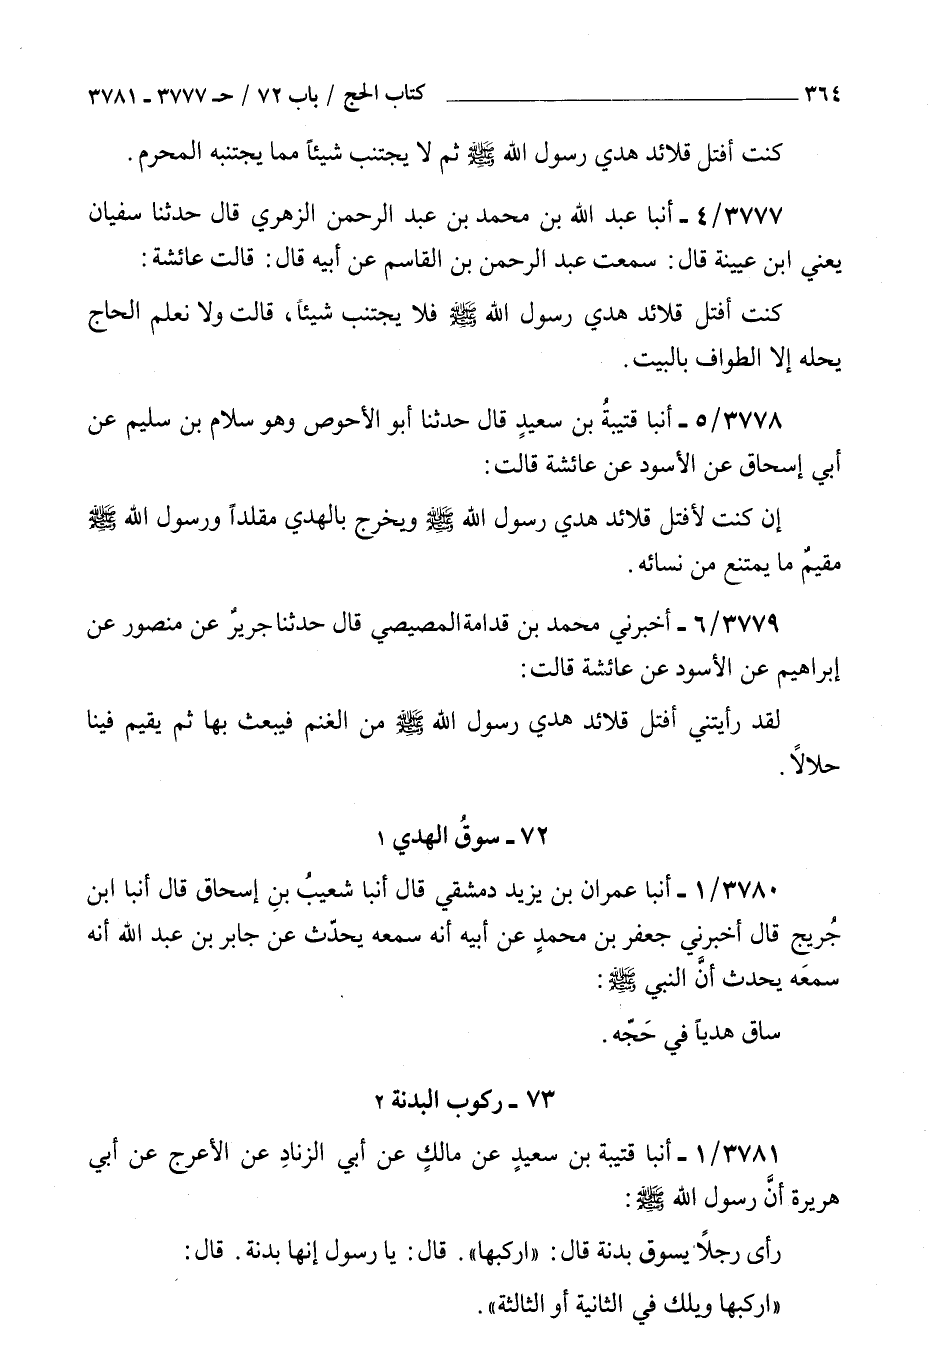 ٣٦٤ ــــــــــــ كتاب الحج / باب ٧٢ / حـ ٣٧٧٧ ـ ٣٧٨١
كنت أفتل قلائد هدي رسول الله ﷺ ثم لا يجتنب شيئاً مما يجتنبه المحرم.
٤/٣٧٧٧ ـ أنبا عبد الله بن محمد بن عبد الرحمن الزهري قال حدثنا سفيان
يعني ابن عيينة قال: سمعت عبد الرحمن بن القاسم عن أبيه قال: قالت عائشة:
كنت أفتل قلائد هدي رسول الله ﷺ فلا يجتنب شيئاً، قالت ولا نعلم الحاج
يحله إلا الطواف بالبيت.
٥/٣٧٧٨ ـ أنبا قتيبةُ بن سعيدٍ قال حدثنا أبو الأحوص وهو سلام بن سليم عن
أبي إسحاق عن الأسود عن عائشة قالت:
إن كنت لأفتل قلائد هدي رسول الله ﷺ ويخرج بالهدي مقلداً ورسول الله ﷺ
مقيمٌ ما يمتنع من نسائه.
٦/٣٧٧٩ ـ أخبرني محمد بن قدامة المصيصي قال حدثنا جريرٌ عن منصور عن
إبراهيم عن الأسود عن عائشة قالت:
لقد رأيتني أفتل قلائد هدي رسول الله ﷺ من الغنم فيبعث بها ثم يقيم فينا
حلالاً.
٧٢ ـ سوقُ الهدي ١
١/٣٧٨٠ ـ أنبا عمران بن يزيد دمشقي قال أنبا شعيبُ بنِ إسحاق قال أنبا ابن
جُريج قال أخبرني جعفر بن محمدٍ عن أبيه أنه سمعه يحدّث عن جابر بن عبد الله أنه
سمعَه يحدث أنَّ النبي ﷺ:
ساق هدياً في حَجّه.
٧٣ ـ ركوب البدنة ٢
١/٣٧٨١ ـ أنبا قتيبة بن سعيدٍ عن مالكٍ عن أبي الزنادِ عن الأعرج عن أبي
هريرة أنَّ رسول الله ﷺ:
رأى رجلاً يسوق بدنة قال: «اركبها». قال: يا رسول إنها بدنة. قال:
«اركبها ويلك في الثانية أو الثالثة».